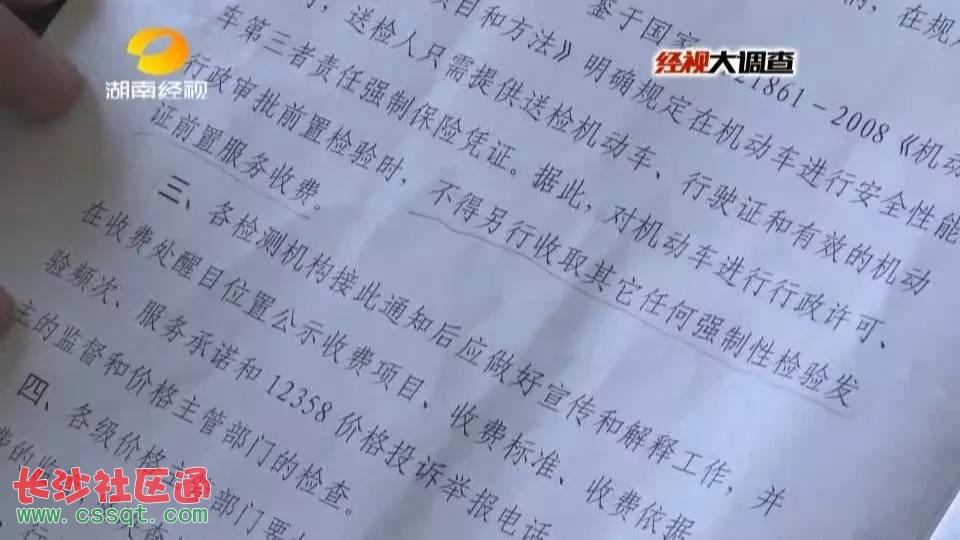 湖南经视
经视大调查
鉴于国家
，在规
项目和方法》明确规定在机动车进行安全性能
21861-2008《机动
时，送检人只需提供送检机动车、行驶证和有效的机动
车第三者责任强制保险凭证。据此，对机动车进行行政许可、
行政审批前置检验时，不得另行收取其它任何强制性检验发
证前置服务收费。
三、各检测机构接此通知后应做好宣传和解释工作，并
在收费处醒目位置公示收费项目、收费标准、收费依据
验频次、服务承诺和12358价格投诉举报电话
主的监督和价格主管部门的检查。
四、各级价格主管部门要
费的监
长沙社区通
www.cssqt.com